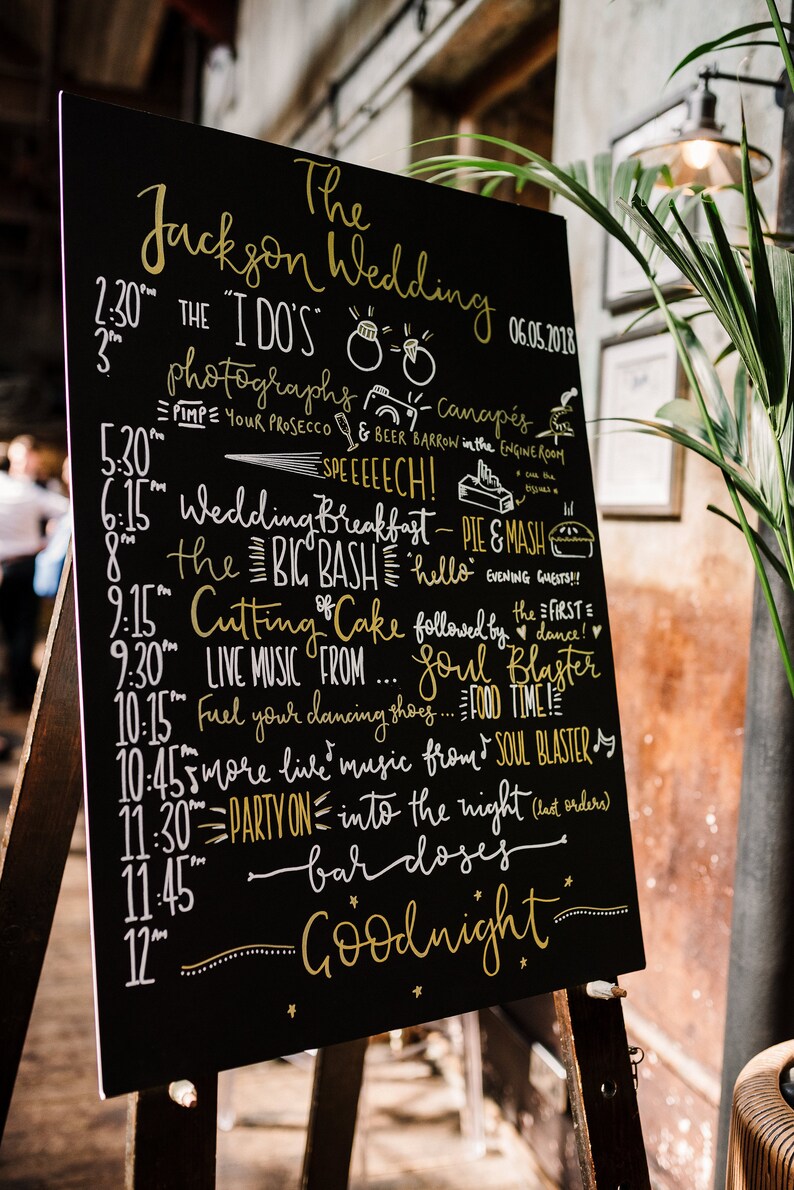 The
Jackson Wedding
2.30PM THE "I DO'S" 06.05.2018
3PM photographs Canapés
PIMP YOUR PROSECCO & BEER BARROW in the ENGINE ROOM
5.30PM SPEEEEECH! * cue the tissues *
6.15PM Wedding Breakfast – PIE & MASH
8PM the BIG BASH "hello" EVENING GUESTS!!!
9:15PM Cutting of Cake followed by the FIRST dance!
9.30PM LIVE MUSIC FROM ... Soul Blaster
10:15PM Fuel your dancing shoes... FOOD TIME!
10:45PM more live music from SOUL BLASTER
11:30PM PARTY ON into the night (last orders)
11:45PM bar closes
12AM Goodnight